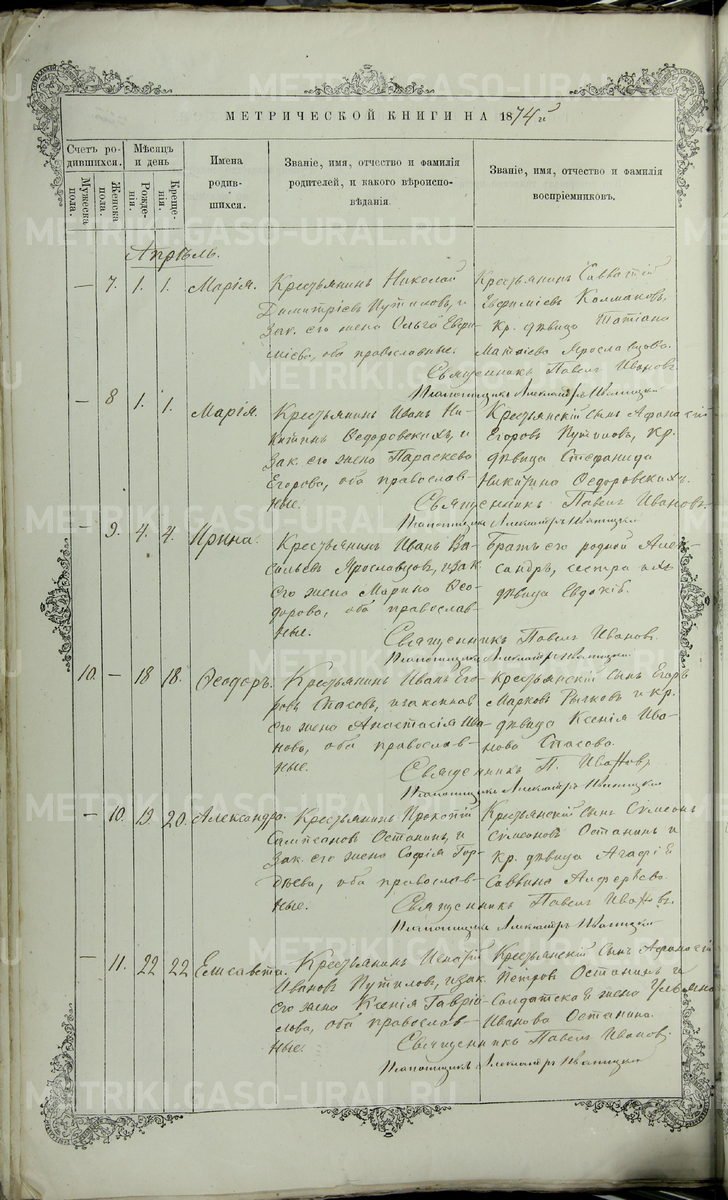 METRIKI.GASO-URAL.RU
МЕТРИЧЕСКОЙ КНИГИ НА 1874 й
Счетъ родившихся.
Мужеска пола.
Женска пола.
Мѣсяцъ и день
Рожденія.
Крещенія.
Имена родившихся.
Званіе, имя, отчество и фамилія родителей, и какого вѣроисповѣданія.
Званіе, имя, отчество и фамилія воспріемниковъ.
Апрѣль.
— 7. 1. 1. Марія.
Крестьянинъ Николай
Димитріевъ Путиловъ, и
зак. его жена Ольга Евфи-
міева, оба православные.
Крестьянинъ Савватій
Евфиміевъ Колмаковъ,
кр. дѣвица Татіана
Матѳіева Ярославцова.
Священникъ Павелъ Ивановъ
Псаломщикъ Александръ
— 8 1. 1. Марія.
Крестьянинъ Иванъ Ни-
китинъ Ѳедоровскихъ, и
зак. его жена Параскева
Егорова, оба православ-
ные.
Крестьянскій сынъ Аѳанасій
Егоровъ Путиловъ, кр.
дѣвица Стефанида
Никитина Ѳедоровскихъ.
Священникъ Павелъ Ивановъ.
Псаломщикъ Александръ
— 9. 4. 4. Ирина.
Крестьянинъ Иванъ Ва-
сильевъ Ярославцовъ, и зак.
его жена Марина Ѳео-
дорова, оба православ-
ные.
Братъ его родной Алек-
сандръ, сестра ихъ
дѣвица Евдокія.
Священникъ Павелъ Ивановъ
Псаломщикъ Александръ
10. — 18 18. Ѳеодоръ.
Крестьянинъ Иванъ Его-
ровъ Спасовъ, и законная
его жена Анастасія Ива-
нова, оба православ-
ные.
Крестьянскій сынъ Егоръ
Марковъ Рычковъ и кр.
дѣвица Ксенія Ива-
нова Спасова.
Священникъ П. Ивановъ
Псаломщикъ Александръ
— 10. 19. 20. Александра.
Крестьянинъ Прокопій
Сампсоновъ Останинъ, и
зак. его жена Софія Гор-
дѣева, оба православ-
ные.
Крестьянскій сынъ Сумеонъ
Сумеоновъ Останинъ и
кр. дѣвица Агафія
Саввина Алферьева.
Священникъ Павелъ Ивановъ.
Псаломщикъ Александръ
— 11. 22 22 Елисавета.
Крестьянинъ Игнатій
Ивановъ Путиловъ, и зак.
его жена Ксенія Гаврі-
лова, оба православ-
ные.
Крестьянскій сынъ Аѳанасій
Петровъ Останинъ и
солдатская жена Ульяна
Иванова Останина.
Священникъ Павелъ Ивановъ
Псаломщикъ Александръ